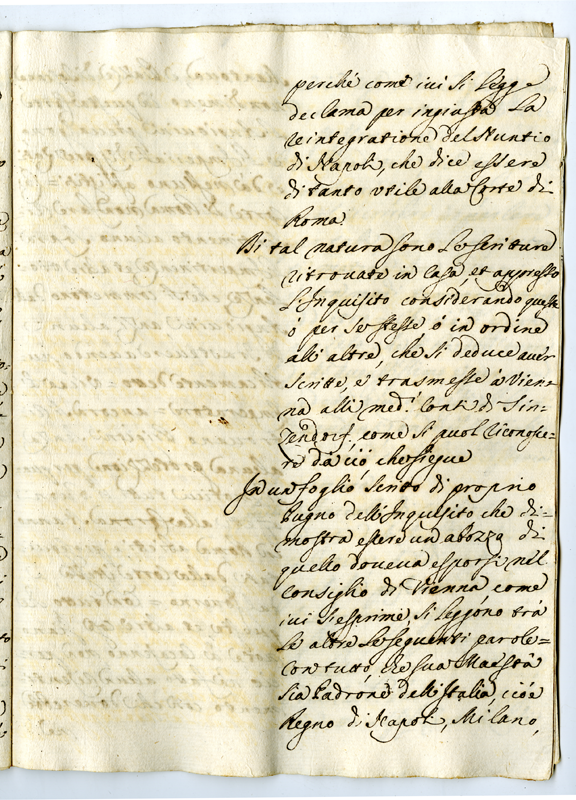 perché come ivi si legge
declama per ingiusta la
reintegratione del Nuntio
di Napoli, che dice essere
di tanto utile alla Corte di
Roma.
Di tal natura sono le scritture
ritrovate in casa, et appresso
l'Inquisito considerando queste
ò per se stesse ò in ordine
alli altre, che si deduce aver
scritte, e trasmesse à Vien=
na alli med.i Conti di Sin=
zendorf. come si puol riconosce=
re da ciò che siegue
In un foglio scritto di proprio
pugno dell'Inquisito che di=
mostra essere un abozzo di
quello doveva esporsi nel
Consiglio di Vienna, come
ivi si esprime, si leggono trà
le altre le seguenti parole=
Con tutto, che sua Maestà
sia Padrone dell'Italia, cioè
Regno di Napoli, Milano,